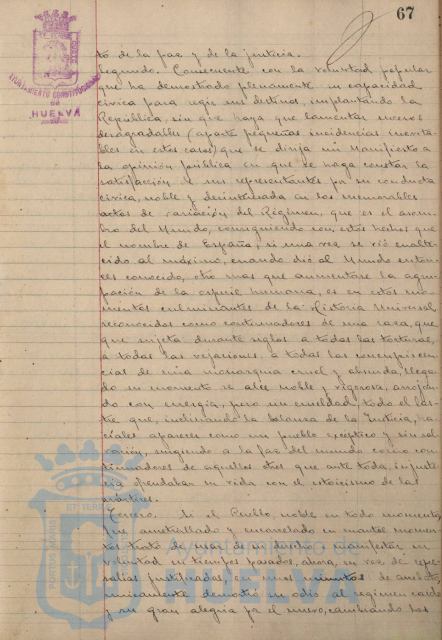 67
AYUNTAMIENTO CONSTITUCIONAL
DE
HUELVA
to de la paz y de la justicia.
Segundo. Consecuente con la voluntad popular
que ha demostrado plenamente su capacidad
cívica para regir sus destinos, implantando la
República, sin que haya que lamentar sucesos
desagradables (aparte pequeñas incidencias inevita-
bles en estos casos) que se dirija un Manifiesto a
la opinión pública en que se haga constar la
satisfacción de sus representantes por su conducta
cívica, noble y desinteresada en los memorables
actos de variación del Régimen, que es el asom-
bro del Mundo, consiguiendo con estos hechos que
el nombre de España, si una vez se vió enalte-
cido al máximo, cuando dió al Mundo enton-
ces conocido, otro mas que aumentase la agru-
pación de la especie humana, es en estos mo-
mentos culminantes de la Historia Universal
reconocidos como continuadores de una raza, que
que sujeta durante siglos a todas las torturas,
a todas las vejaciones, a todas las concupiscen-
cias de una monarquia cruel y absurda, llega-
do su momento se alza noble y vigorosa, arrojan-
do con energía, pero sin crueldad, todo el las-
tre que, inclinando la balanza de la Justicia, ha-
ciales aparecer como un pueblo escéptico y sin sal-
vación, surgiendo a la faz del mundo como con-
tinuadores de aquellos otros que ante toda injusti-
cia ofrendaban su vida con el estoicismo de los
mártires.
Tercero. Si el Pueblo, noble en todo momento,
fue ametrallado y encarcelado en cuantos momen-
tos trató de usar de su derecho a manifestar su
voluntad en tiempos pasados, ahora, en vez de repre-
salias justificadas, en unos minutos de
unicamente demostró su odio al regimen caido
y su gran alegria por el nuevo, cambiando los
PORTUS MARIS ET TERRE
Ayuntamiento de
HUELVA